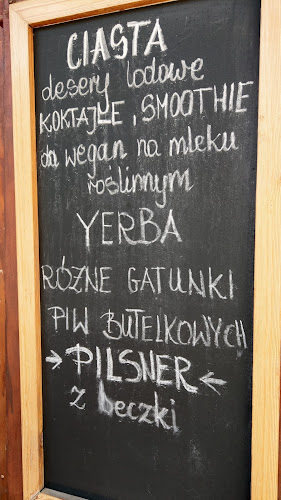 CIASTA
desery lodowe
KOKTAJLE, SMOOTHIE
da wegan na mleku
roślinnym
YERBA
RÓŻNE GATUNKI
PIW BUTELKOWYCH
→PILSNER←
z beczki